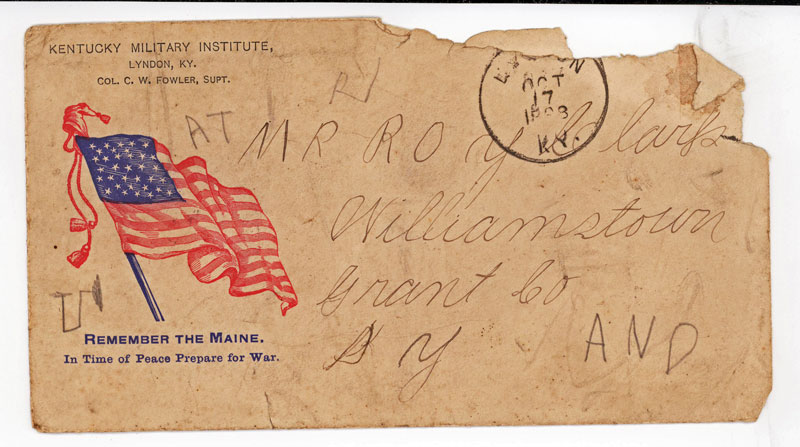 KENTUCKY MILITARY INSTITUTE,
LYNDON, KY.
COL. C. W. FOWLER, SUPT.
OCT
17
1898
KY.
AT
MR ROy Clark
Williamstown
Grant Co
Ky
AND
REMEMBER THE MAINE.
In Time of Peace Prepare for War.